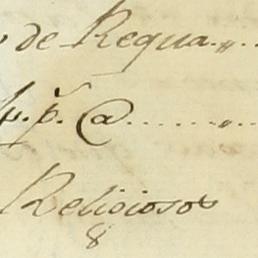 de Regua..,,..
p. @......,,..
Religiosos
8